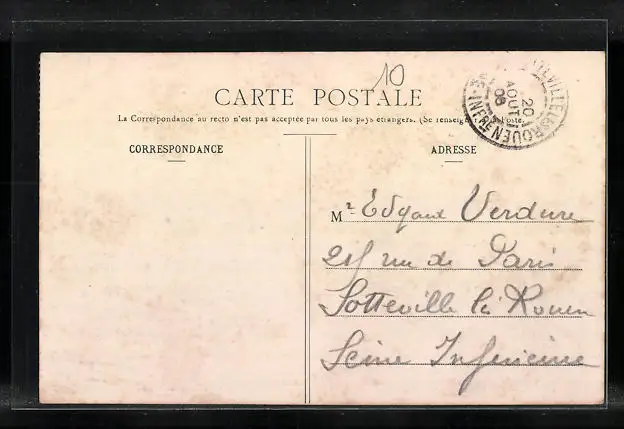 10
CARTE POSTALE
La Correspondance au recto n'est pas acceptée par tous les pays étrangers. (Se renseigner Poste.
CORRESPONDANCE
ADRESSE
Mr Edgard Verdure
rue de Paris
Sotteville lès Rouen
Seine Inférieure
20
AOUT
08
ROUEN